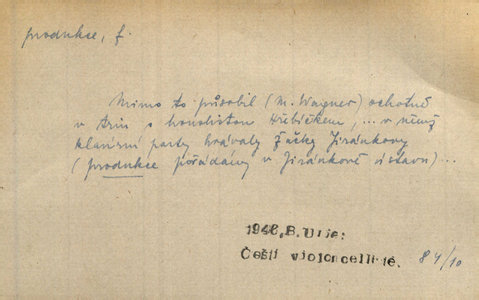 produkce, f.
Mimo to působil (M. Wagner) ochotně
v triu s houslistou Hřbíčkem, ... v němž
klavírní party hrávaly žačky Jiránkovy
(produkce pořádány v Jiránkově ústavu) ...
1948, B. Urie:
Čeští violoncellisté. 84/10